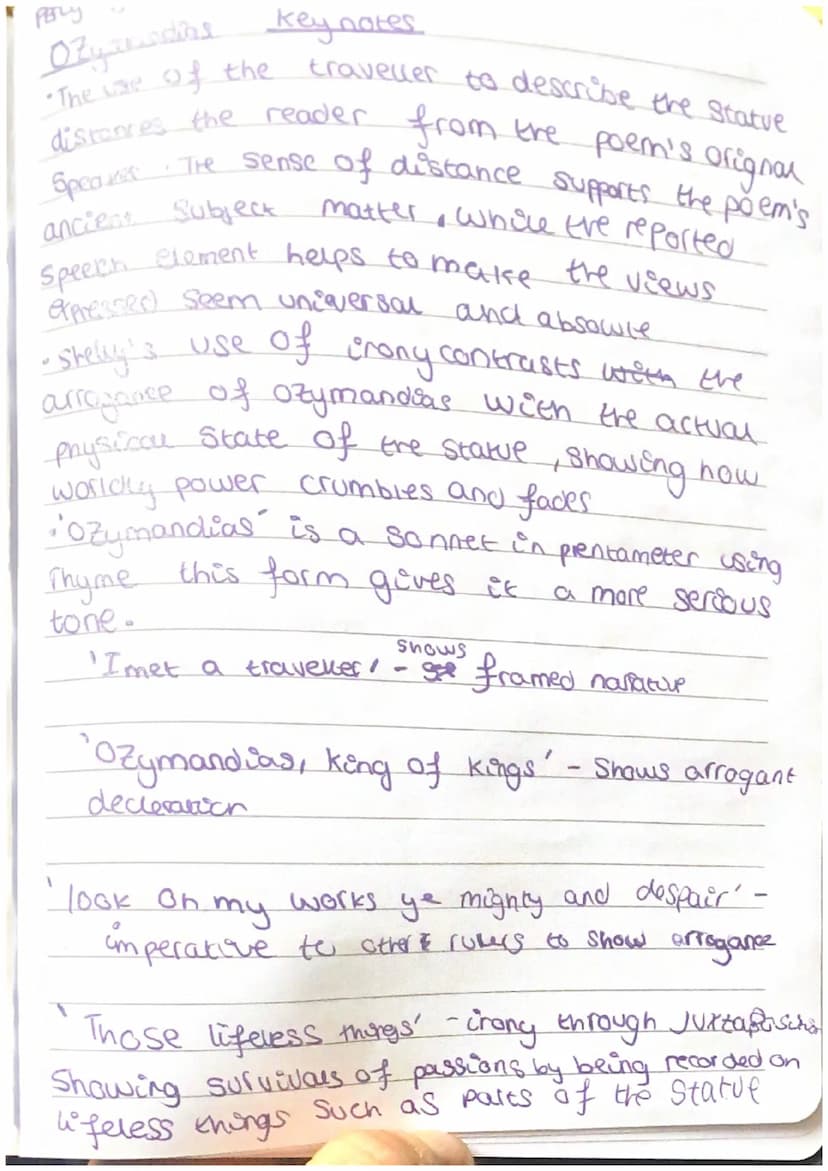 Key notes
Ozymandias
• The use of the traveller to describe the statue
distances the reader from the poem's orignal
Speaker. The sense of distance supports the poem's
ancient Subject matter, while the reported
speech element helps to make the views
expressed seem universal and absolute
• Shelly's use of irony contrasts the
arrogance of Ozymandias with the actual
physical State of the statue, showing how
worldly power crumbles and fades
• 'Ozymandias' is a sonnet in pentameter using
rhyme this form gives it a more serious
tone.
'I met a traveller' - shows framed narrative
'Ozymandias, King of Kings' - Shows arrogant
decleration
'look on my works ye mighty and despair' -
imperative to other rulers to show arrogance
'Those lifeless things' - irony through
Showing survivals of passions by being recorded on
lifeless things such as parts of the Statue